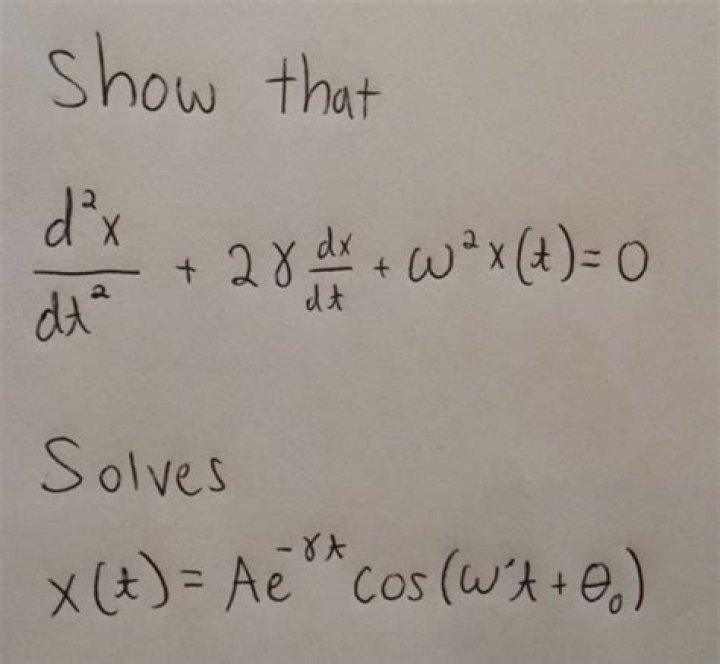 Show that
d²x/dt² + 2γ dx/dt + ω²x(t) = 0
Solves
x(t) = Ae^(-γt) cos(ω't + θ₀)